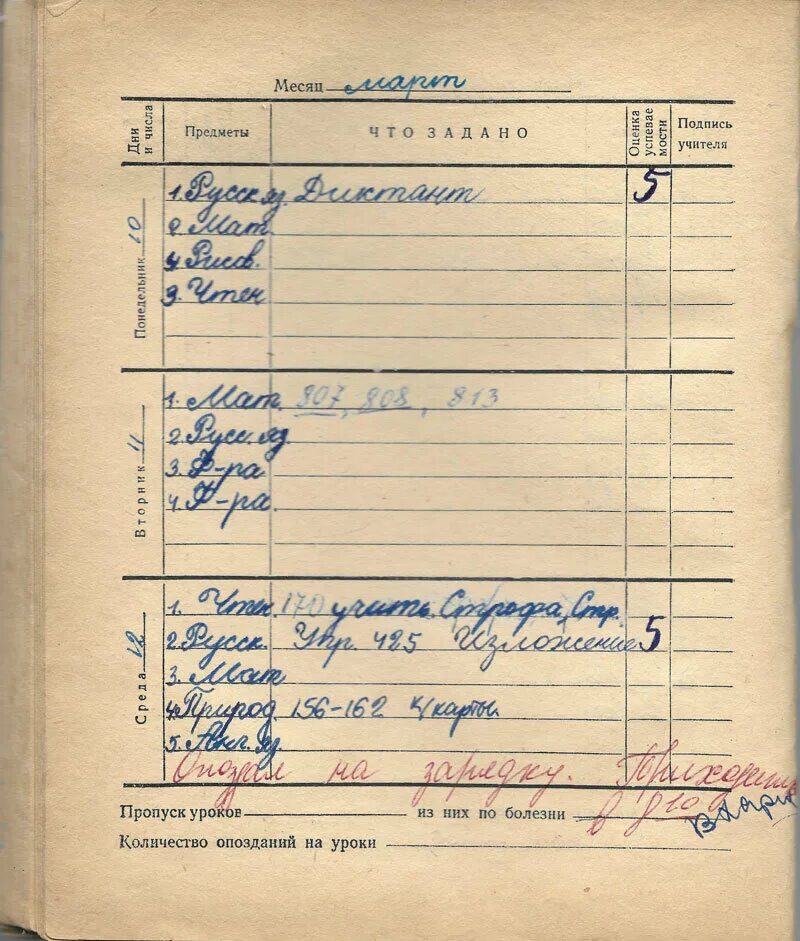 Месяц март
Дни и числа Предметы ЧТО ЗАДАНО Оценка успевае мости Подпись учителя
Понедельник 10
1. Русск яз. Диктант 5
2 Мат.
4 Рисов.
3. Чтен
Вторник 11
1. Мат. 807, 808, 813
2 Русс. яз
3. Ф-ра
4. Ф-ра
Среда 12
1. Чтен. 170 учить. Строфа, Стр.
2 Русск. Упр. 425 Изложение 5
3. Мат
4. Природ. 156-162 к/карты.
5. Анг. яз.
Опоздал на зарядку. Приходить
в 8 10
Пропуск уроков из них по болезни
Количество опозданий на уроки